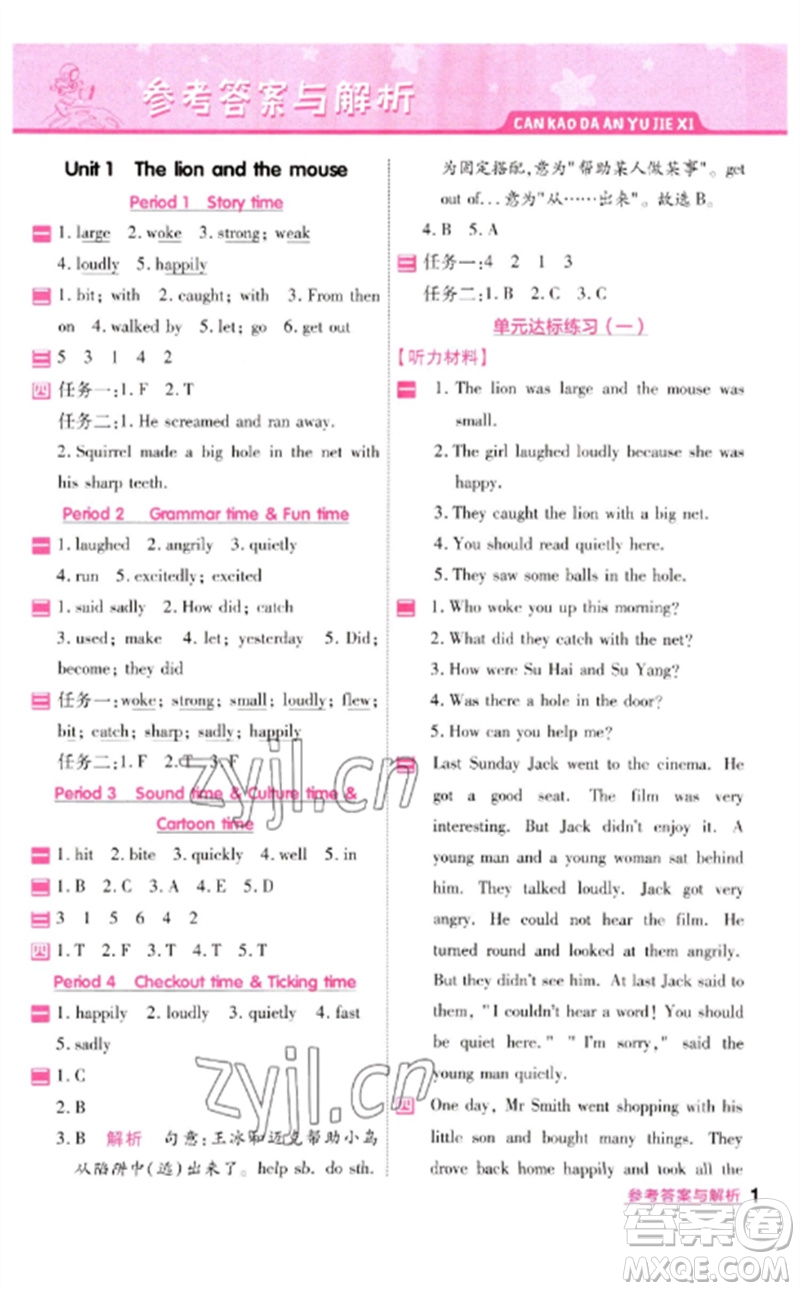 参考答案与解析
CAN KAO DA AN YU JIE XI
Unit 1 The lion and the mouse
Period 1 Story time
一 1. large 2. woke 3. strong; weak
4. loudly 5. happily
二 1. bit; with 2. caught; with 3. From then
on 4. walked by 5. let; go 6. get out
三 5 3 1 4 2
四 任务一:1. F 2. T
任务二:1. He screamed and ran away.
2. Squirrel made a big hole in the net with
his sharp teeth.
Period 2 Grammar time & Fun time
一 1. laughed 2. angrily 3. quietly
4. run 5. excitedly; excited
二 1. said sadly 2. How did; catch
3. used; make 4. let; yesterday 5. Did;
become; they did
三 任务一:woke; strong; small; loudly; flew;
bit; catch; sharp; sadly; happily
任务二:1. F 2. T 3. F
Period 3 Sound time & Culture time &
Cartoon time
一 1. hit 2. bite 3. quickly 4. well 5. in
二 1. B 2. C 3. A 4. E 5. D
三 3 1 5 6 4 2
四 1. T 2. F 3. T 4. T 5. T
Period 4 Checkout time & Ticking time
一 1. happily 2. loudly 3. quietly 4. fast
5. sadly
二 1. C
2. B
3. B 解析 句意:王冰和迈克帮助小鸟
从陷阱中(逃)出来了。help sb. do sth.
为固定搭配,意为"帮助某人做某事"。get
out of... 意为"从……出来"。故选 B。
4. B 5. A
三 任务一:4 2 1 3
任务二:1. B 2. C 3. C
单元达标练习(一)
【听力材料】
一 1. The lion was large and the mouse was
small.
2. The girl laughed loudly because she was
happy.
3. They caught the lion with a big net.
4. You should read quietly here.
5. They saw some balls in the hole.
二 1. Who woke you up this morning?
2. What did they catch with the net?
3. How were Su Hai and Su Yang?
4. Was there a hole in the door?
5. How can you help me?
三 Last Sunday Jack went to the cinema. He
got a good seat. The film was very
interesting. But Jack didn't enjoy it. A
young man and a young woman sat behind
him. They talked loudly. Jack got very
angry. He could not hear the film. He
turned round and looked at them angrily.
But they didn't see him. At last Jack said to
them, "I couldn't hear a word! You should
be quiet here." "I'm sorry," said the
young man quietly.
四 One day, Mr Smith went shopping with his
little son and bought many things. They
drove back home happily and took all the
参考答案与解析 1
zyjl.cn
zyjl.cn
答案卷
MXQE.COM